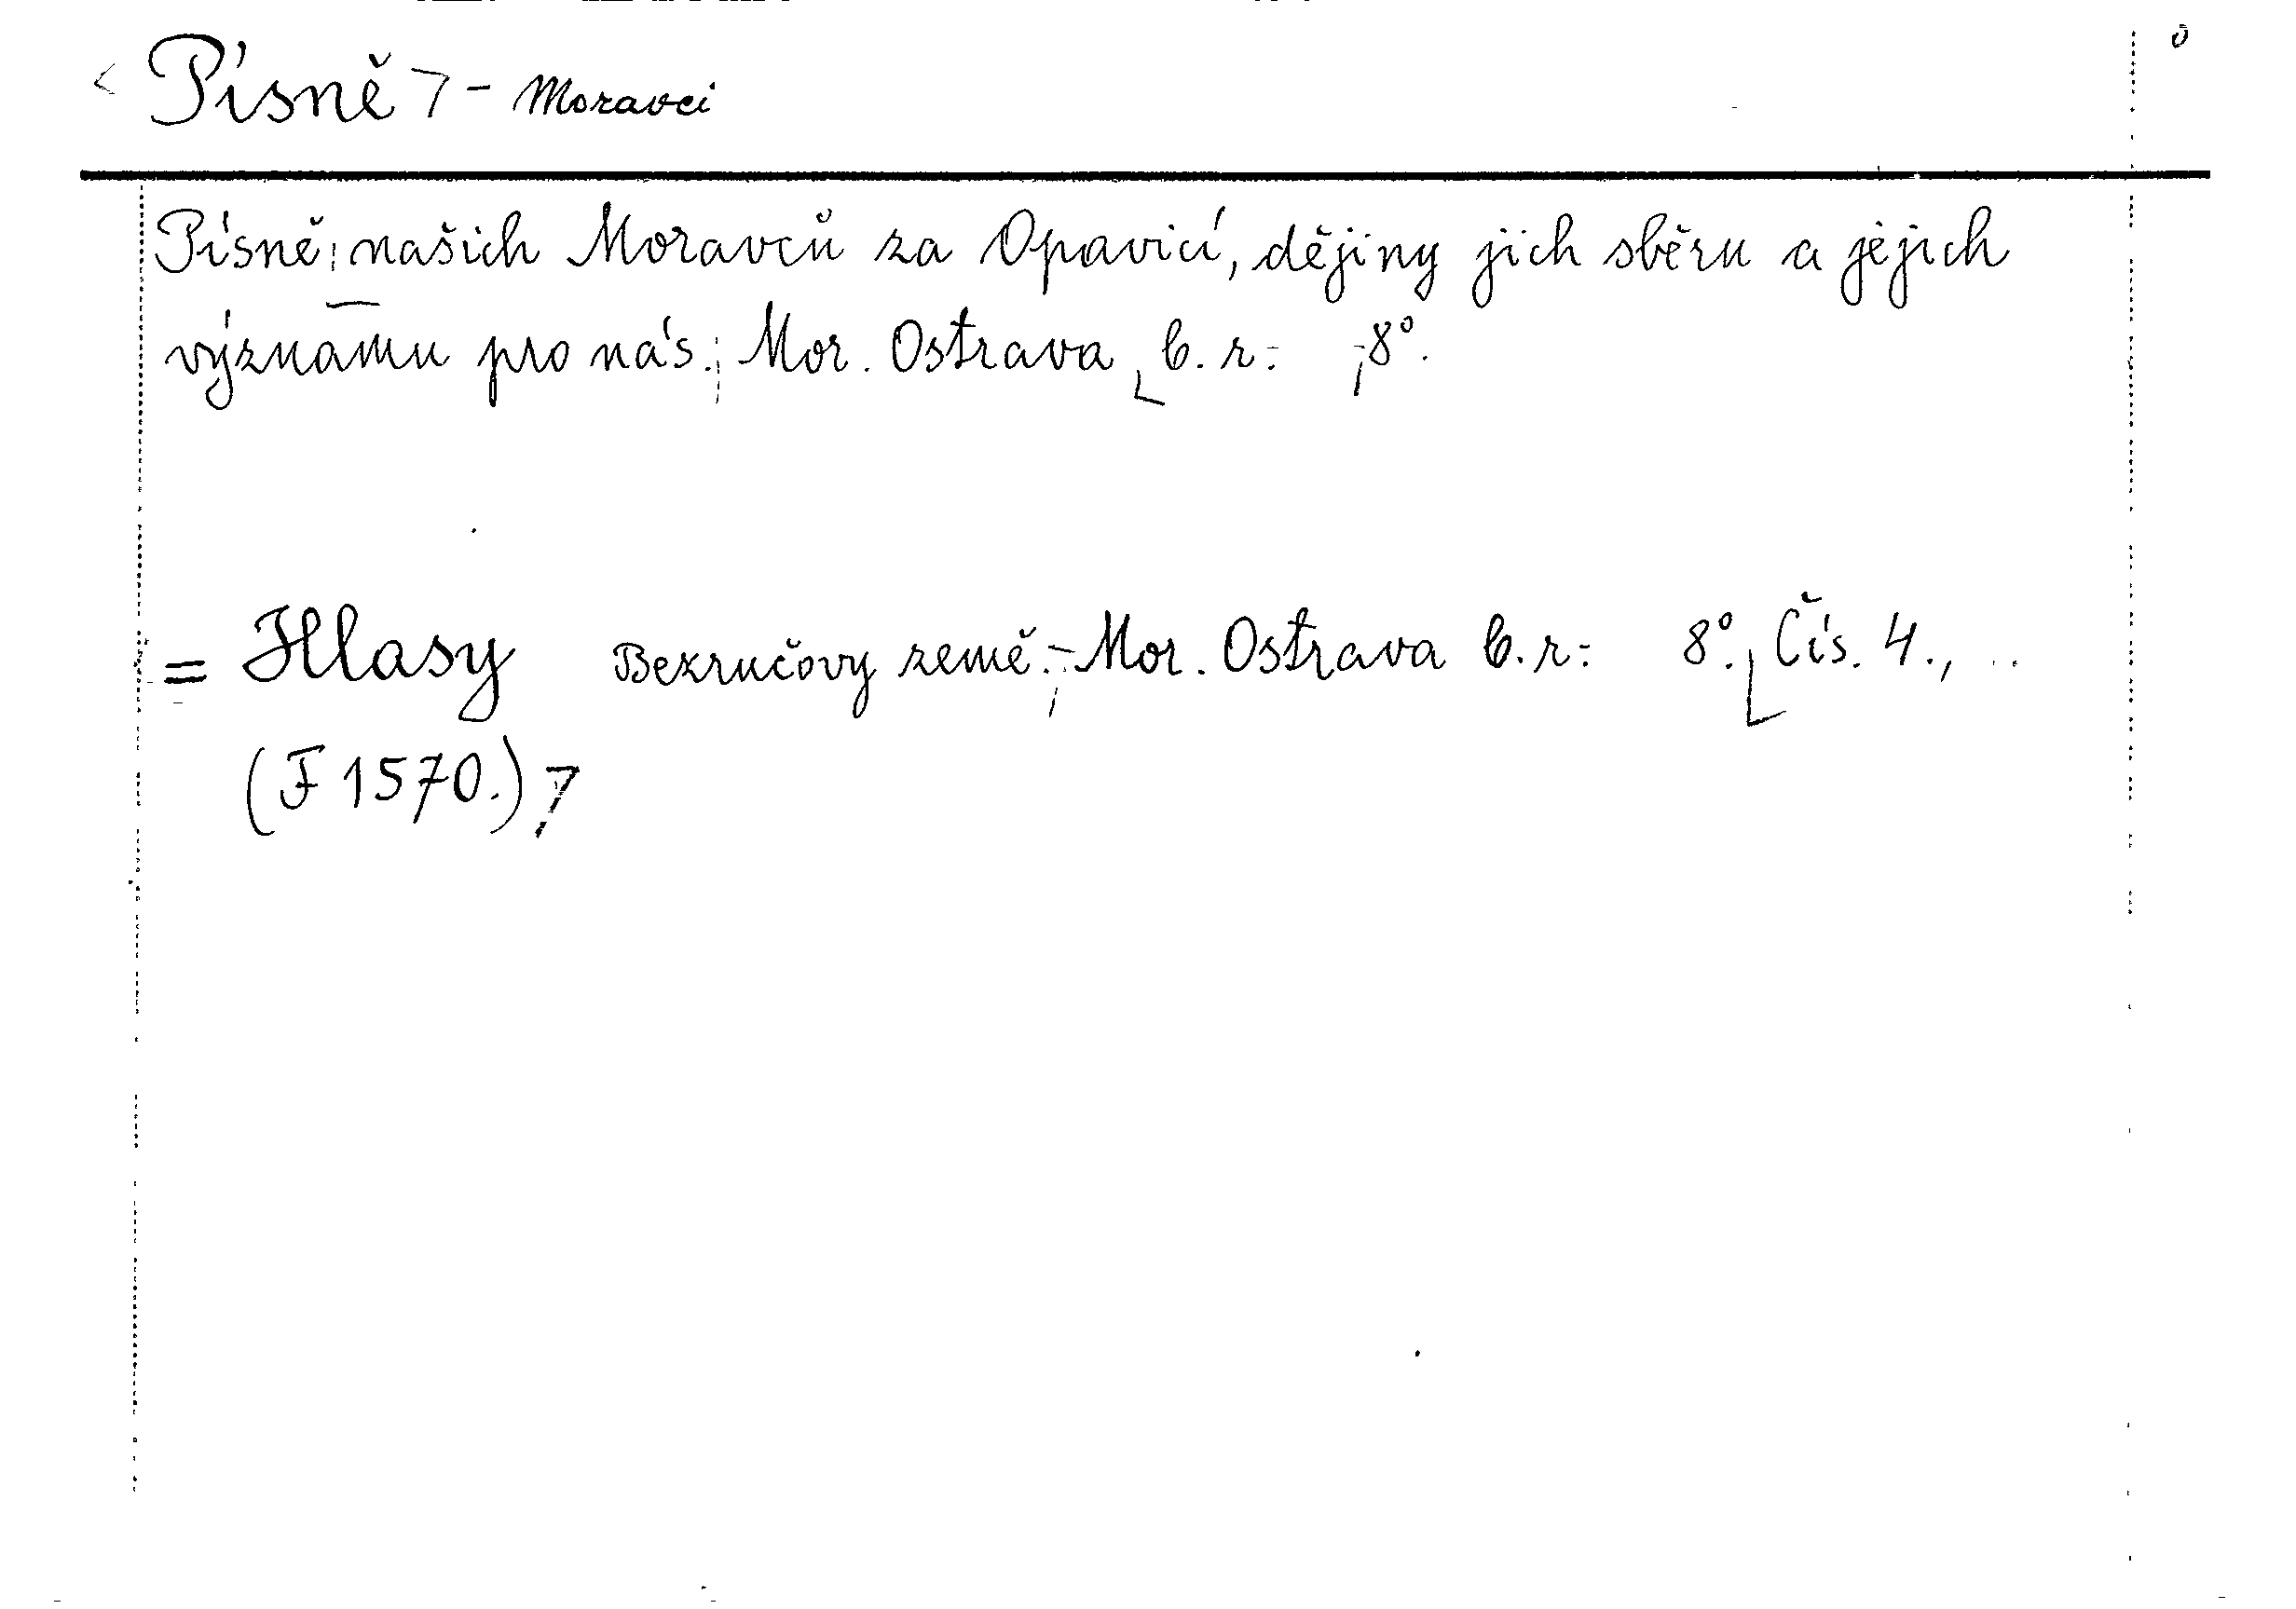 Písně - Moravci
Písně našich Moravců za Opavicí, dějiny jich sběru a jejich
významu pro nás. Mor. Ostrava b. r. 8°.
= Hlasy Bezručovy země. - Mor. Ostrava b. r. 8°. Čís. 4.,
(F 1570.)